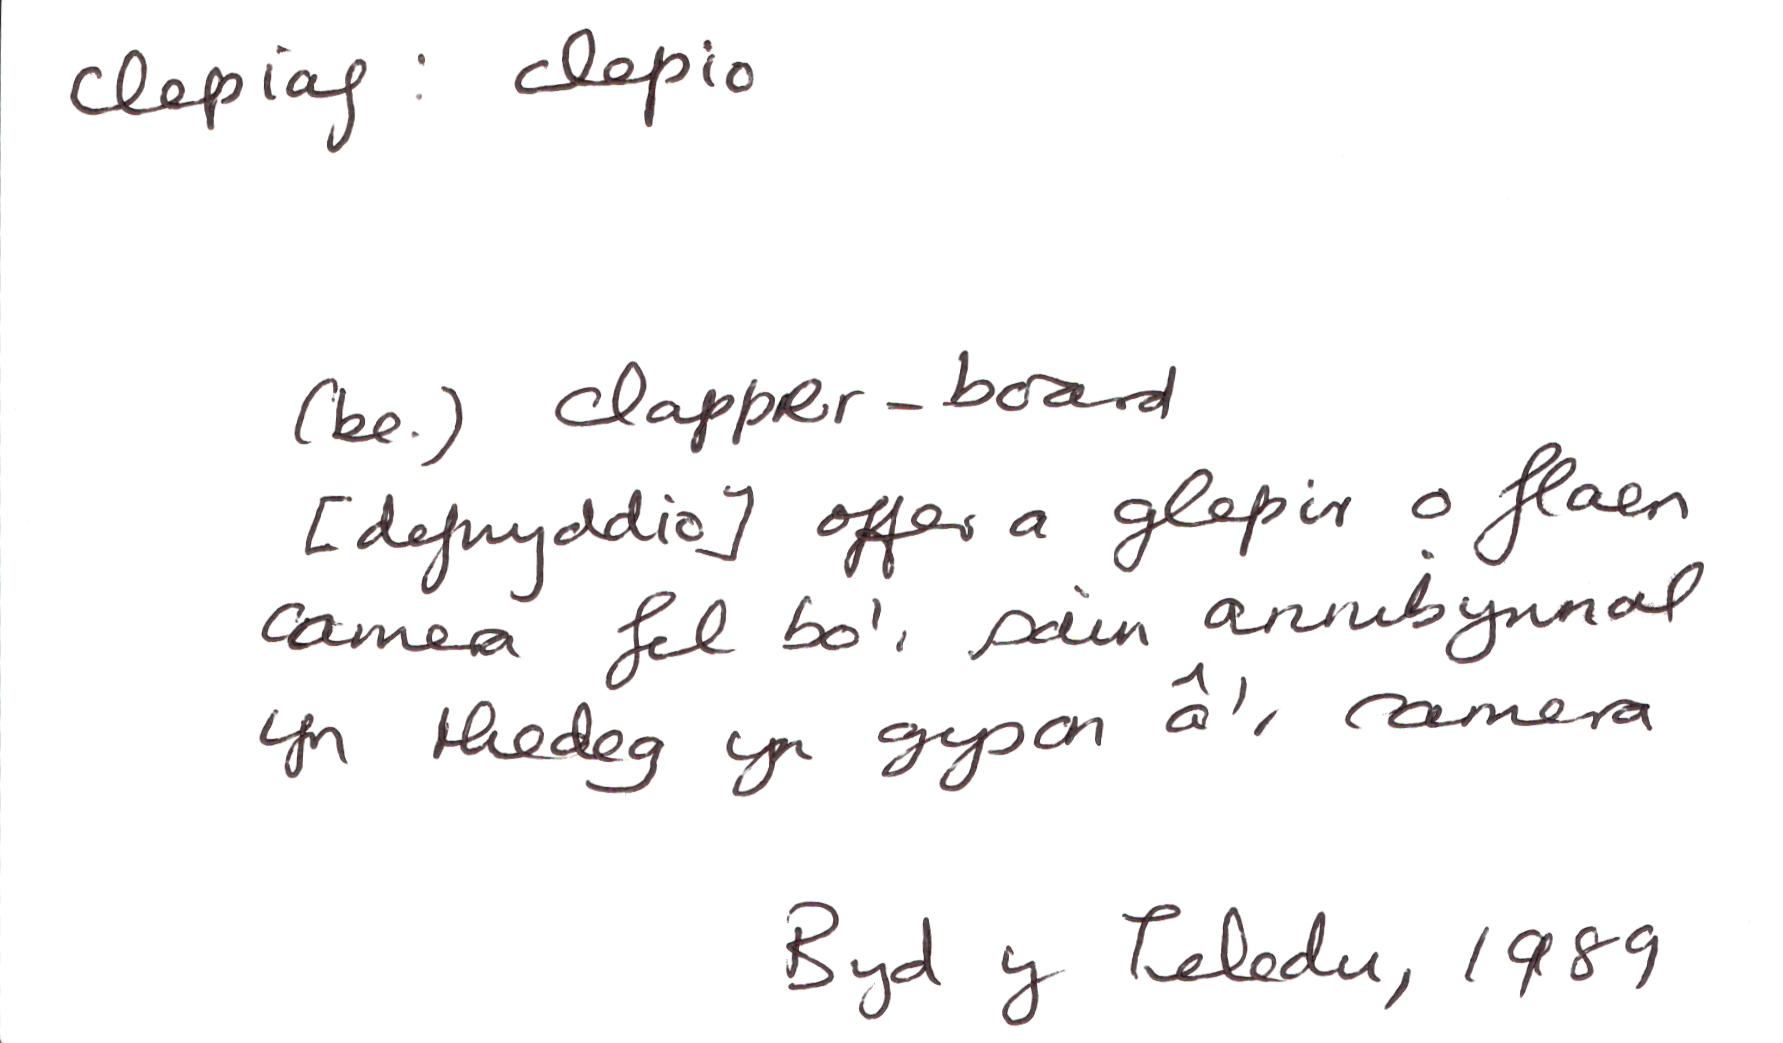 clepiaf : clepio
(be.) clapper-board
[defnyddio] offer a glepir o flaen
camera fel bo'r sain annibynnol
yn rhedeg yn gyson â'r camera
Byd y Teledu, 1989